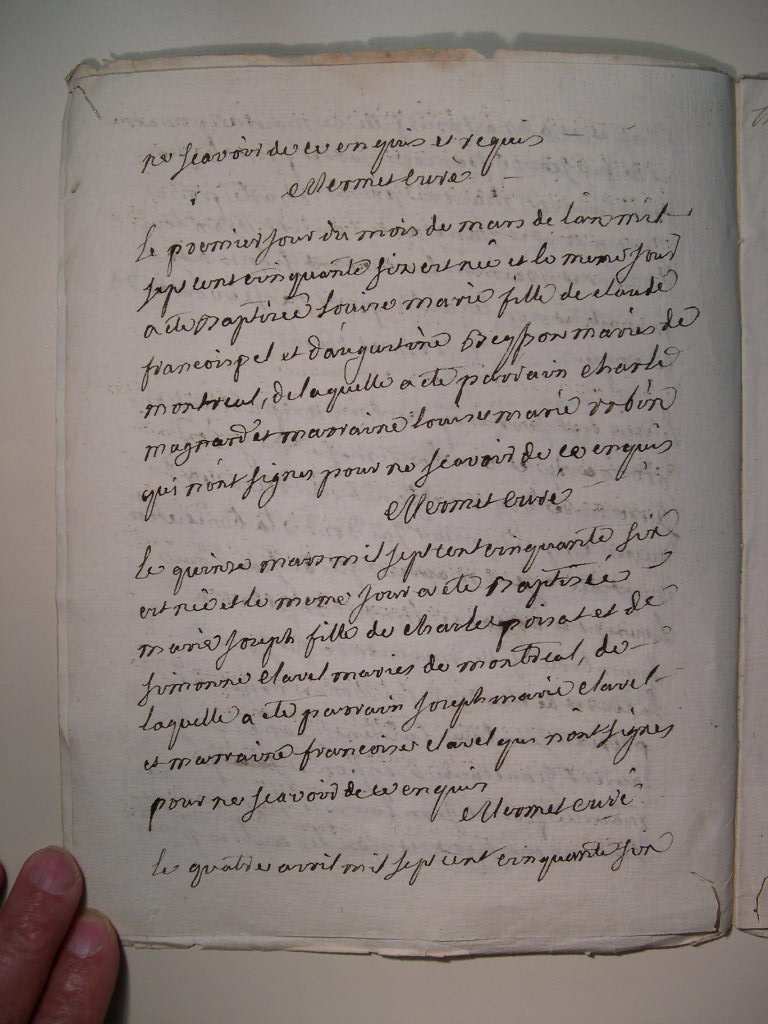 ne scavoir de ce enquis et requis
Mermet curé
le premier jour du mois de mars de l'an mil
sept cent cinquante six est née et le meme jour
a ete Baptisée louise marie fille de claude
francois pel et d'augustine Beysson maries de
montreal, de laquelle a ete parrain charle
magnard et marraine louise marie robin
qui n'ont signes pour ne scavoir de ce enquis
Mermet curé
le quinze mars mil sept cent cinquante six
est née et le meme jour a ete Baptisée
marie joseph fille de charle poisat et de
simonne clavel maries de montreal, de
laquelle a ete parrain joseph marie clavel
et marraine francoise clavel qui n'ont signes
pour ne scavoir de ce enquis
Mermet curé
le quatre avril mil sept cent cinquante six